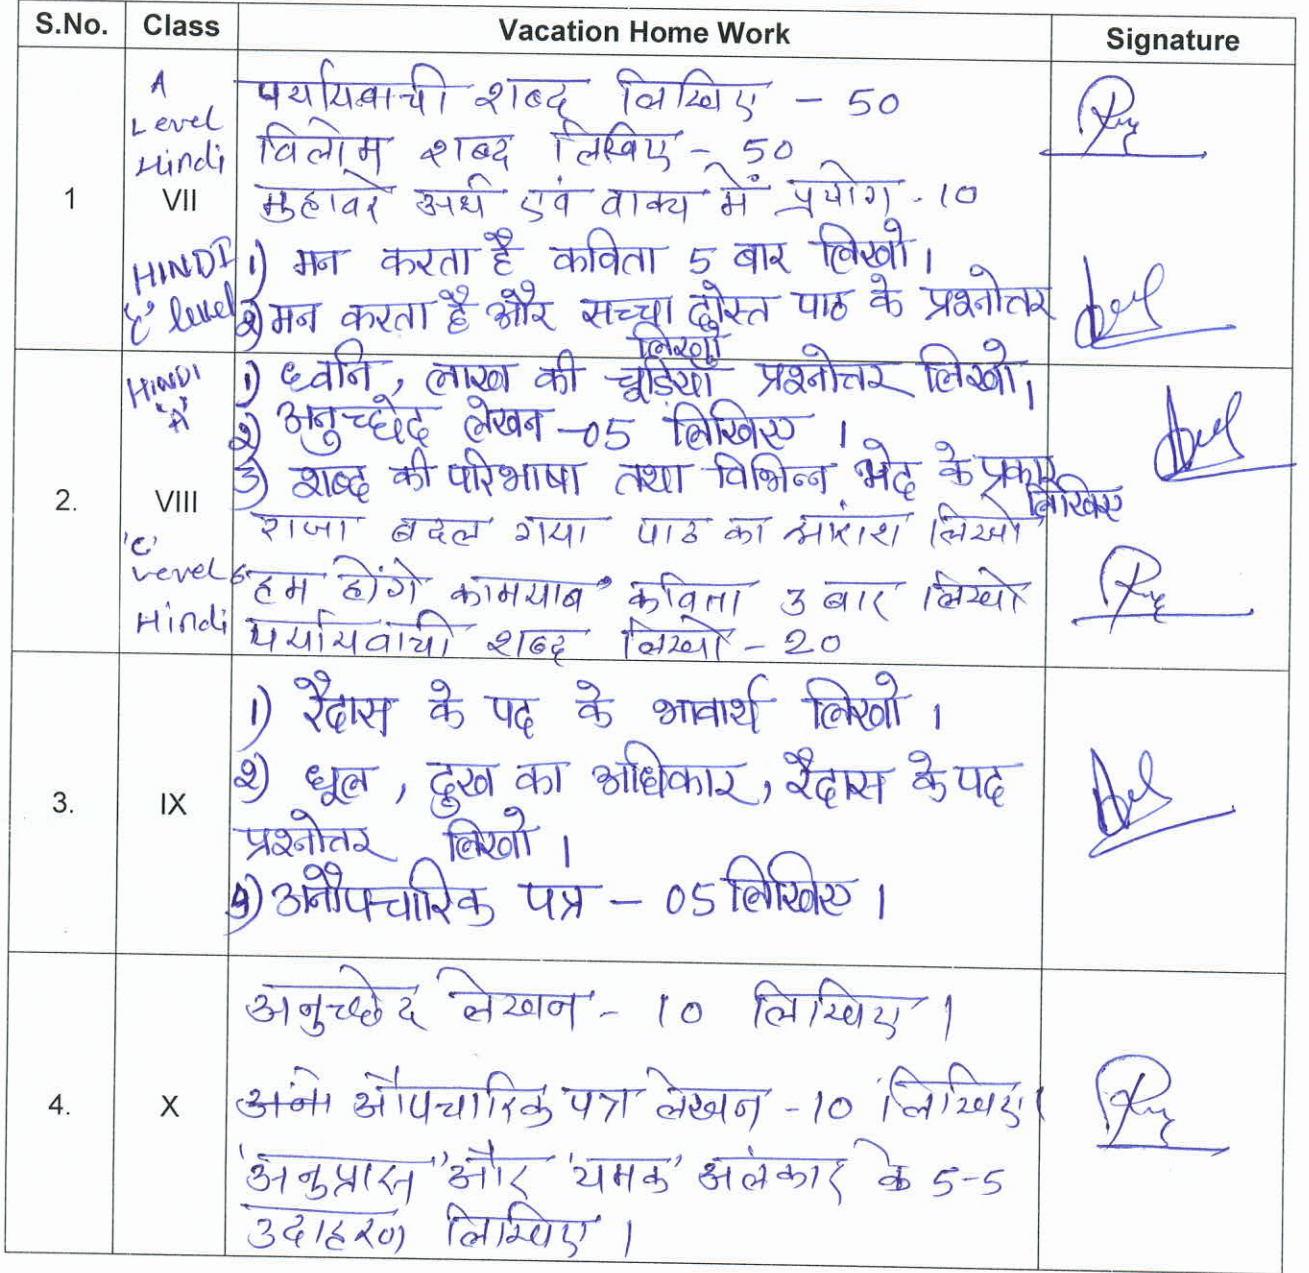 S.No. Class Vacation Home Work Signature
A Level Hindi
पर्यायवाची शब्द लिखिए - 50
विलोम शब्द लिखिए - 50
1 VII मुहावरे अर्थ एवं वाक्य में प्रयोग - 10
HINDI 'C' level
1) मन करता है कविता 5 बार लिखो।
2) मन करता है और सच्चा दोस्त पाठ के प्रश्नोत्तर
लिखो
HINDI 'A'
1) ध्वनि, लाख की चूड़ियाँ प्रश्नोत्तर लिखो।
2) अनुच्छेद लेखन -05 लिखिए।
3) शब्द की परिभाषा तथा विभिन्न भेद के प्रकार
लिखिए
2. VIII
'C' Level Hindi
राजा बदल गया पाठ का सारांश लिखो
"हम होंगे कामयाब" कविता 3 बार लिखो
पर्यायवाची शब्द लिखो - 20
1) रैदास के पद के भावार्थ लिखो।
3. IX
2) धूल, दुख का अधिकार, रैदास के पद
प्रश्नोत्तर लिखो।
3) अनौपचारिक पत्र - 05 लिखिए।
अनुच्छेद लेखन - 10 लिखिए।
4. X औपचारिक पत्र लेखन - 10 लिखिए।
'अनुप्रास' और 'यमक' अलंकार के 5-5
उदाहरण लिखिए।